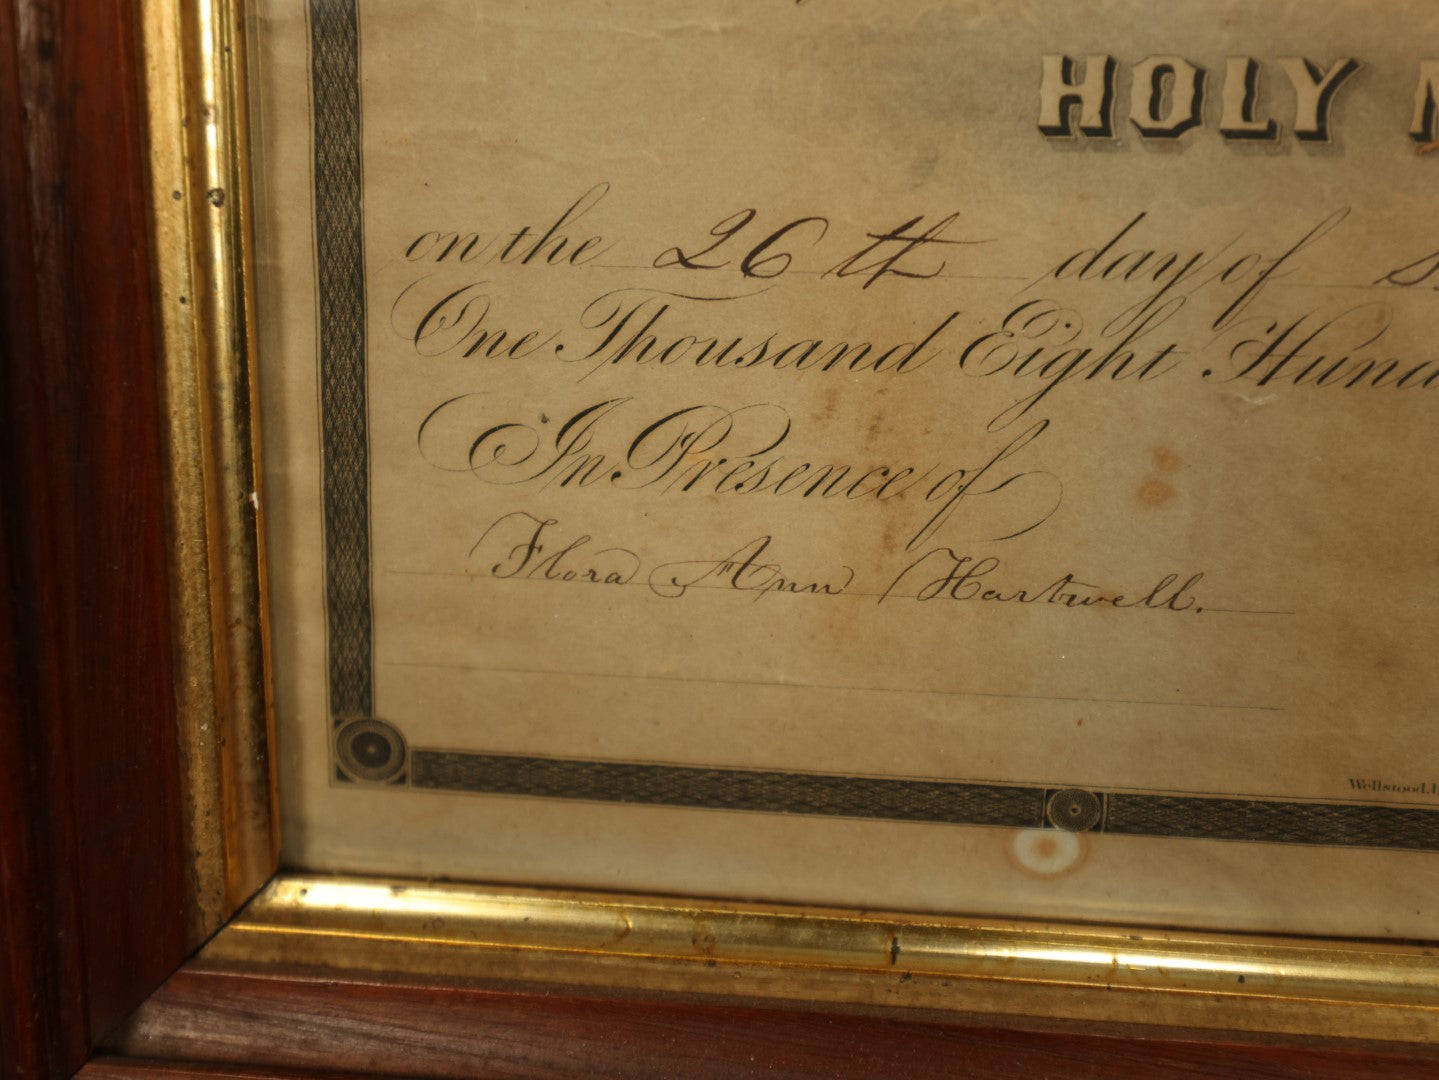 HOLY
on the 26th day of
One Thousand Eight
In Presence of
Flora Ann Hartwell.
Wellstood,